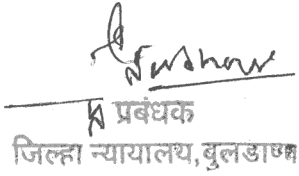 प्रबंधक
जिल्हा न्यायालय, बुलडाणा